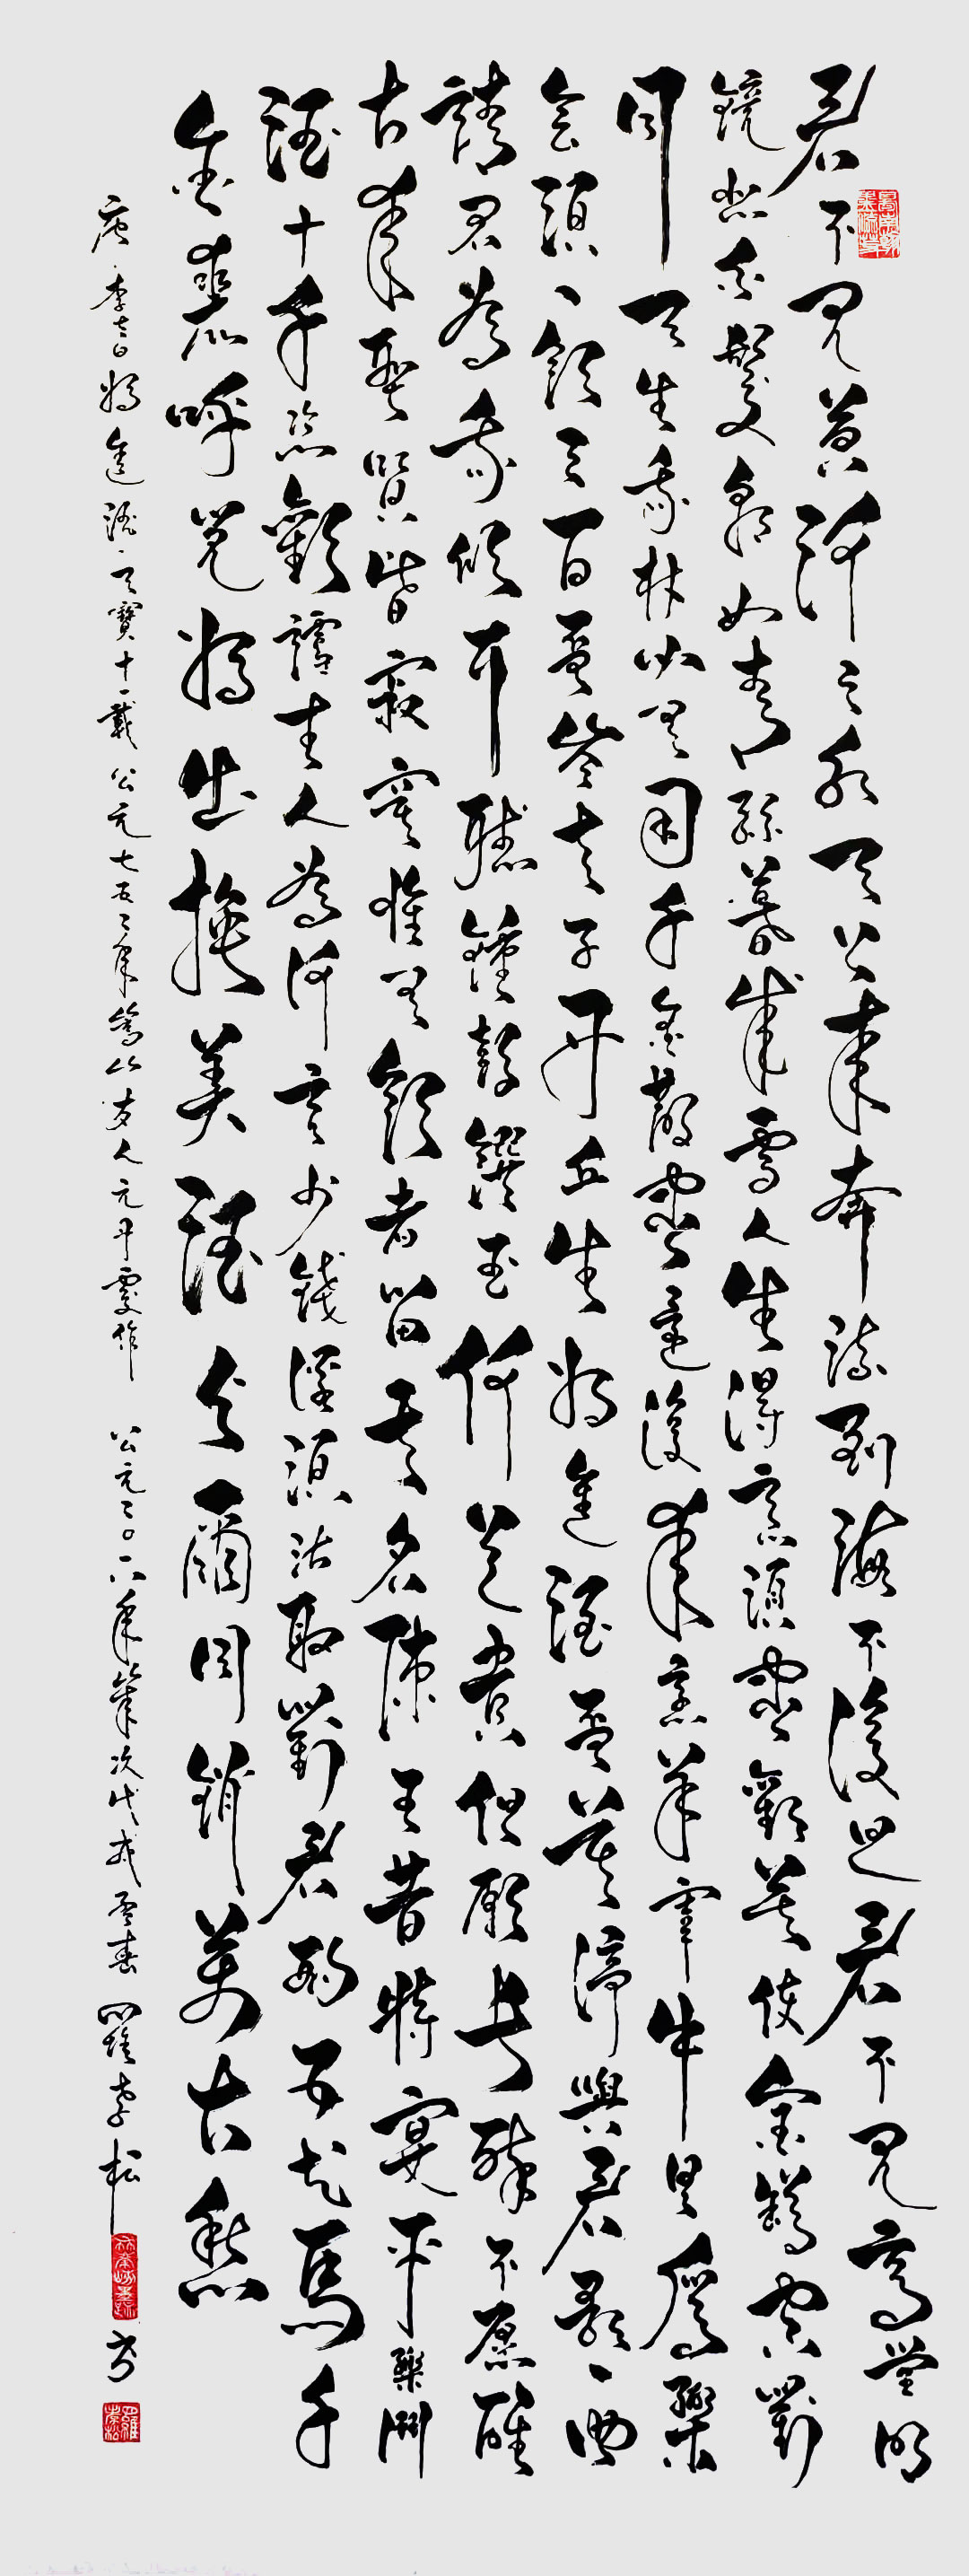 君不見黃河之水天上來奔流到海不復回君不見高堂明
鏡悲白髮朝如青絲暮成雪人生得意須盡歡莫使金樽空對
月天生我材必有用千金散盡還復來烹羊宰牛且為樂
會須一飲三百杯岑夫子丹丘生將進酒杯莫停與君歌一曲
請君為我傾耳聽鐘鼓饌玉何足貴但願長醉不願醒
古來聖賢皆寂寞惟有飲者留其名陳王昔時宴平樂鬥
酒十千恣歡謔主人為何言少錢徑須沽取對君酌五花馬千
金裘呼兒將出換美酒與爾同銷萬古愁
唐李白將進酒天寶十一載公元七五二年嵩山友人元丹處作 公元二〇一八年歲次戊戌孟春 松書